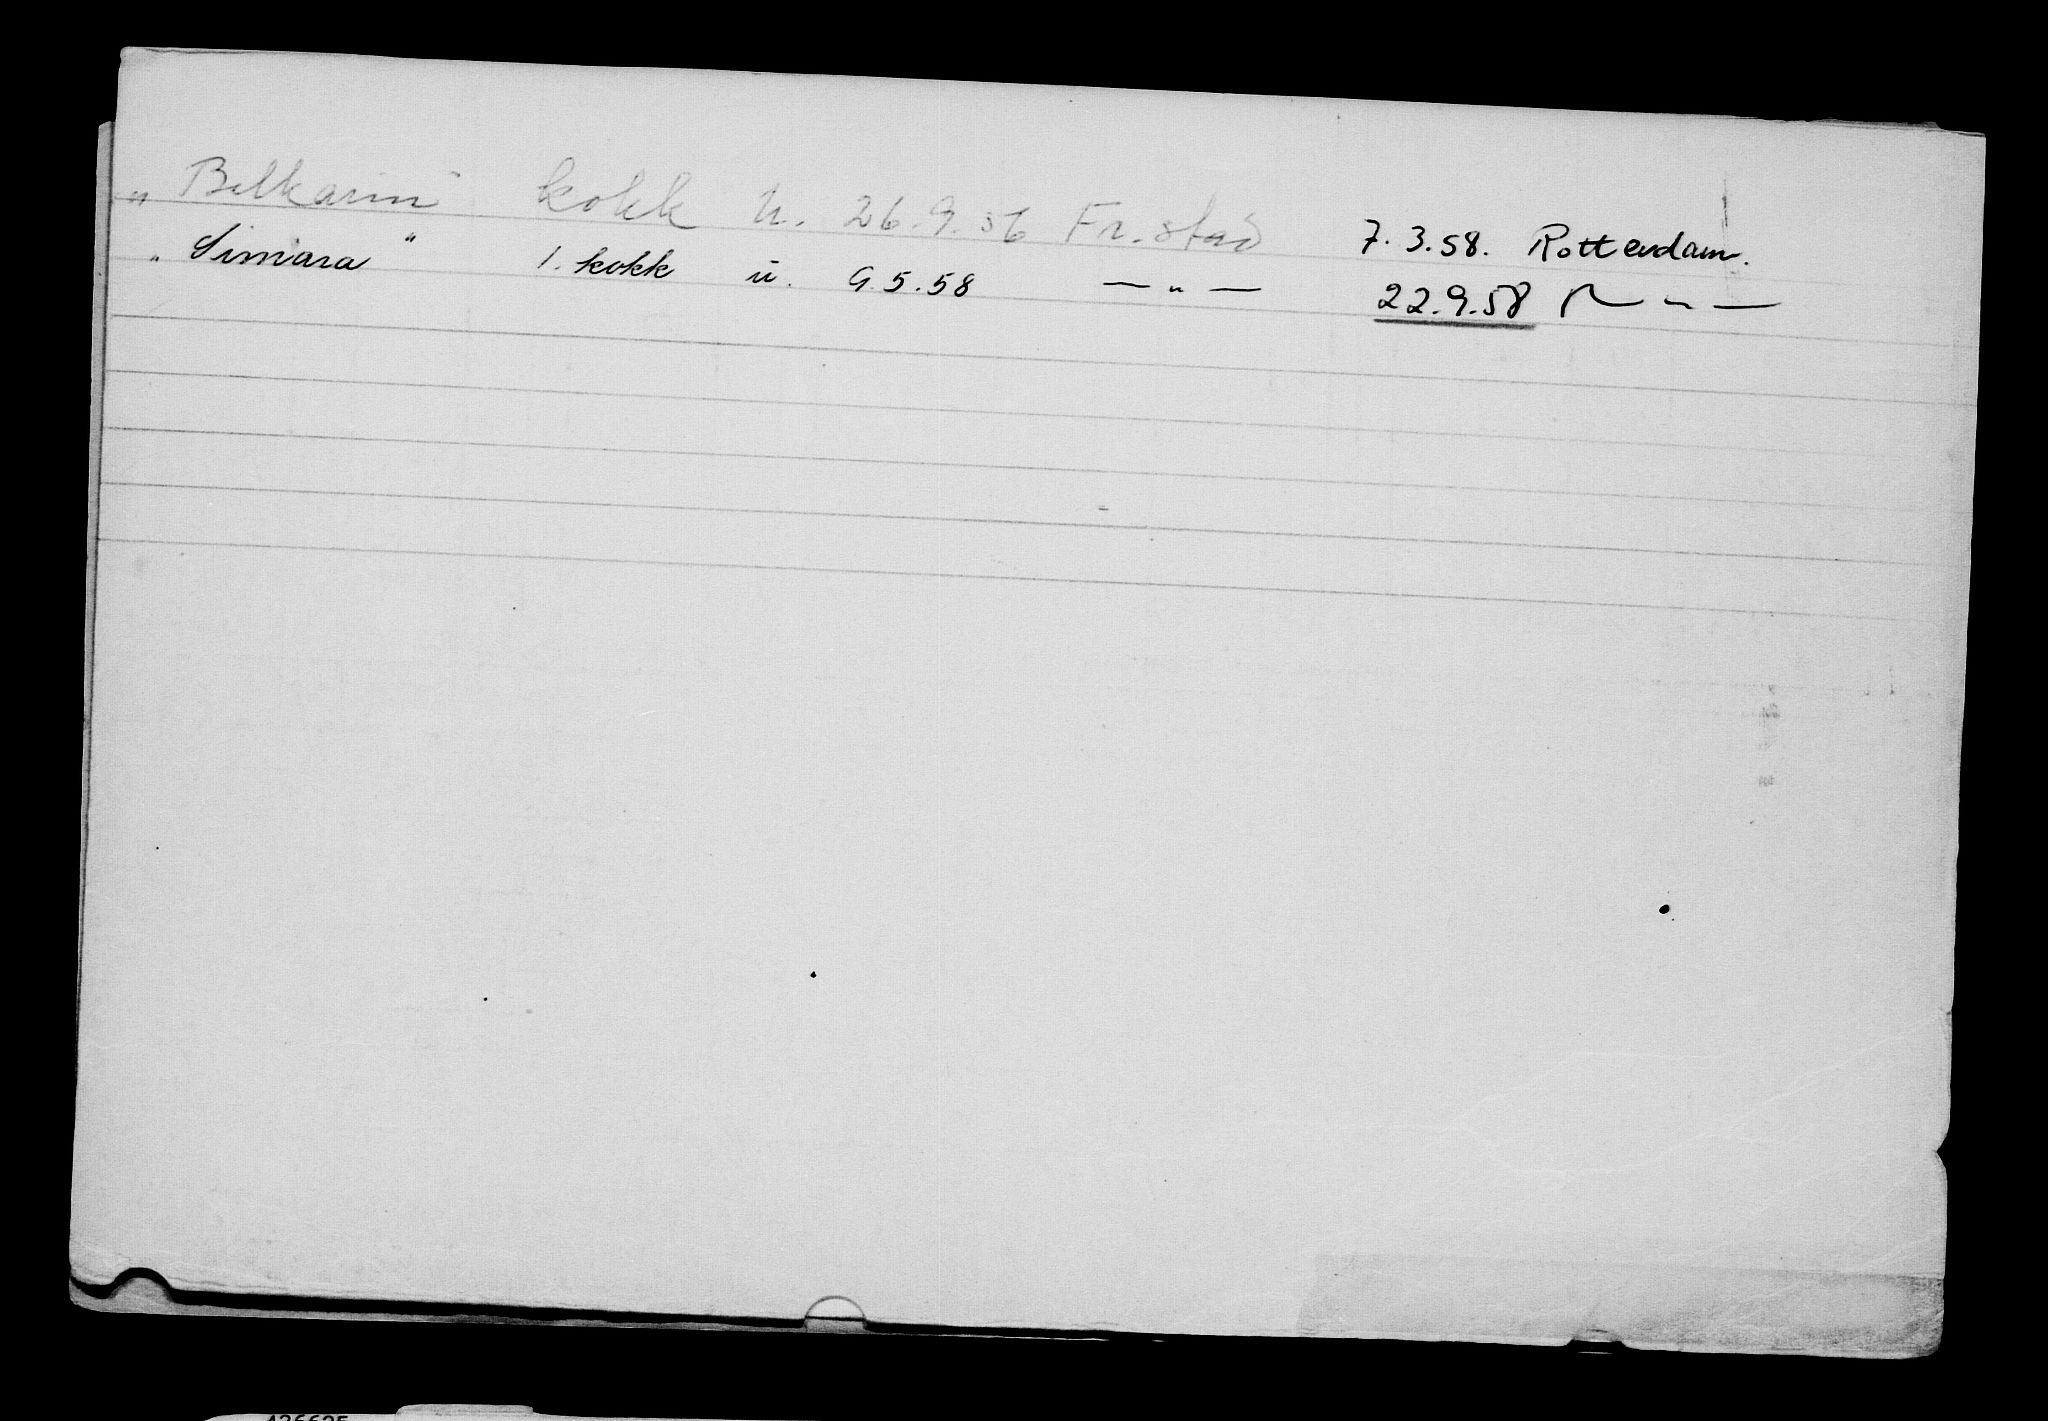 „ Belkarin" kokk u. 26.9.56 Fr.stad 7.3.58. Rotterdam.
„ Simara " 1. kokk u. 9.5.58 — " — 22.9.58 — " —